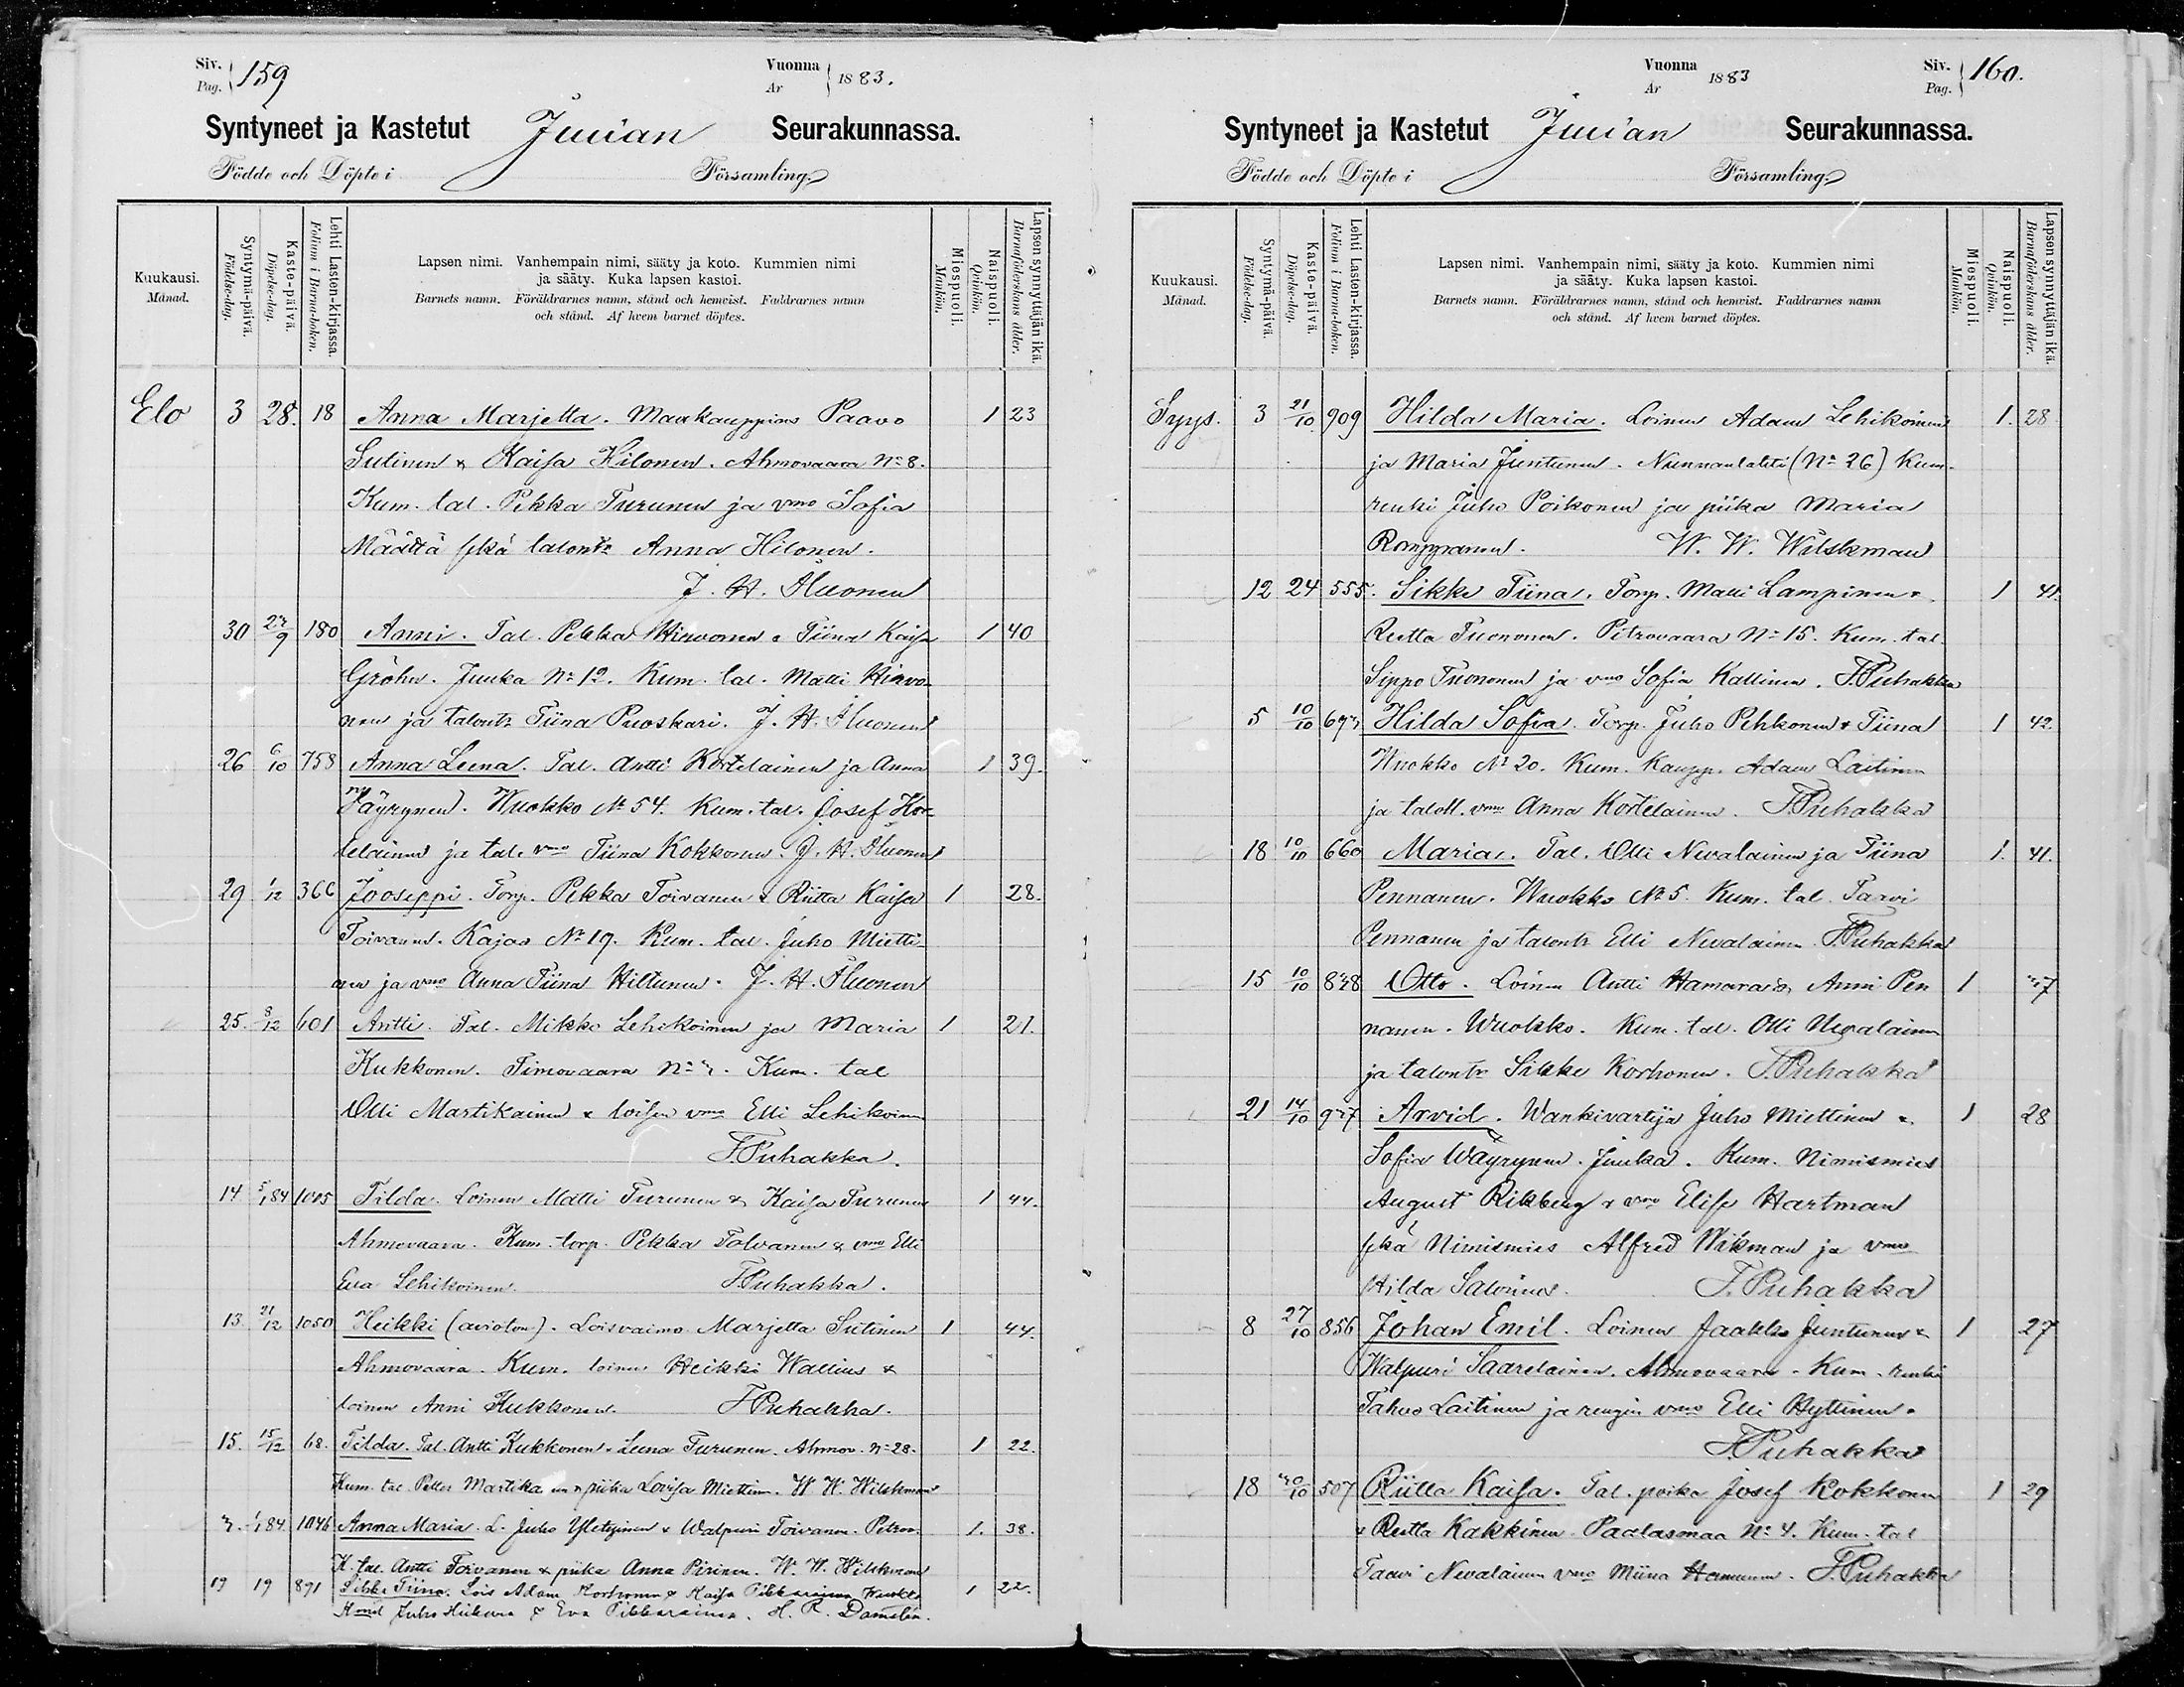 Siv. Pag. 159
Vuonna År 1883.
Syntyneet ja Kastetut Juuan Seurakunnassa.
Födde och Döpte i Församling.
Kuukausi. Månad.
Syntymä-päivä. Födelse-dag.
Kaste-päivä. Döpelse-dag.
Lehti Lasten-kirjassa. Folium i Barna-boken.
Lapsen nimi. Vanhempain nimi, sääty ja koto. Kummien nimi
ja sääty. Kuka lapsen kastoi.
Barnets namn. Föräldrarnes namn, stånd och hemvist. Faddrarnes namn
och stånd. Af hvem barnet döptes.
Miespuoli. Mankön.
Naispuoli. Qvinkön.
Lapsen synnyttäjän ikä. Barnaföderskans ålder.
Elo 3 28. 18 Anna Marjetta. Maakauppias Paavo 1 23
Sutinen & Kaisa Hilonen. Ahmovaara No 8.
Kum. tal. Pekka Turunen ja vmo Sofia
Määttä sekä talontr Anna Hilonen.
J. H. Huonen
30 23/9 180 Anni. Tal. Pekka Hirvonen & Tiina Kaisa 1 40
Gröhn. Juuka No 12. Kum. tal. Matti Hirvo-
nen ja talontr Tiina Puoskari. J. H. Huonen
26 6/10 758 Anna Leena. Tal. Antti Kortelainen ja Anna 1 39.
Väyrynen. Wuokko No 54. Kum. tal. Josef Kor-
telainen ja tal. vmo Tiina Kokkonen. J. H. Huonen
29 1/12 366 Jooseppi. Torp. Pekka Toivanen & Riitta Kaisa 1 28.
Toivanen. Kajoo No 19. Kum. tal. Juho Mietti-
nen ja vmo Anna Tiina Hiltunen. J. H. Huonen
25. 8/12 601 Antti. Tal. Mikko Lehikoinen ja Maria 1 21.
Kukkonen. Timovaara No 3. Kum. tal
Olli Martikainen & loisen vmo Elli Lehikoinen
F. Puhakka.
14 5/1 84 1005 Tilda. Loinen Matti Turunen & Kaisa Turunen 1 44.
Ahmovaara. Kum. torp. Pekka Tolvanen & vmo Elli
Eva Lehikoinen. F. Puhakka.
13. 21/12 1050 Heikki (avioton). Loisvaimo Marjetta Sutinen 1 44.
Ahmovaara. Kum. loinen Heikki Wallius &
loinen Anni Kukkonen. F. Puhakka.
15. 15/12 68. Tilda. Tal. Antti Kukkonen & Leena Turunen. Ahmov. No 28. 1 22.
Kum. tal. Petter Martika nen & piika Lovisa Miettinen. W. W. Wilskman
3. 1/1 84 1046 Anna Maria. L. Juho Yletyinen & Walpuri Toivanen. Petrov. 1. 38.
K. tal. Antti Toivanen & piika Anna Pirinen. W. W. Wilskman
19 19 891 Sikke Tiina. Lois Adam Korhonen & Kaisa Pikkarainen Wuokko 1 22.
Juho & Eva Pikkarainen. H. R. Damstén.
Vuonna År 1883
Siv. Pag. 160.
Syntyneet ja Kastetut Juuan Seurakunnassa.
Födde och Döpte i Församling.
Kuukausi. Månad.
Syntymä-päivä. Födelse-dag.
Kaste-päivä. Döpelse-dag.
Lehti Lasten-kirjassa. Folium i Barna-boken.
Lapsen nimi. Vanhempain nimi, sääty ja koto. Kummien nimi
ja sääty. Kuka lapsen kastoi.
Barnets namn. Föräldrarnes namn, stånd och hemvist. Faddrarnes namn
och stånd. Af hvem barnet döptes.
Miespuoli. Mankön.
Naispuoli. Qvinkön.
Lapsen synnyttäjän ikä. Barnaföderskans ålder.
Syys. 3 21/10 909 Hilda Maria. Loinen Adam Lehikoinen 1. 28
ja Maria Juntunen. Nunnanlahti (No 26) Kum.
renki Juho Poikonen ja piika Maria
Romppanen. W. W. Wilskman
12 24 555. Sikke Tiina. Torp. Matti Lampinen & 1 41.
Reetta Tuononen. Petrovaara No 15. Kum. tal.
Sippo Tuononen ja vmo Sofia Kallinen. F. Puhakka
5 10/10 673 Hilda Sofia. Torp. Juho Pehkonen & Tiina 1 42
Wuokko No 20. Kum. kaupp. Adam Laitinen
ja taloll. vmo Anna Kortelainen. F. Puhakka
18 10/10 660 Maria. Tal. Olli Nevalainen ja Tiina 1. 41.
Pennanen. Wuokko No 5. Kum. tal. Taavi
Pennanen ja talontr Elli Nevalainen. F. Puhakka
15 10/10 838 Otto. Loinen Antti & Anni Pen 1 37
nanen. Wuokko. Kum. tal. Olli Nevalainen
ja talontr Sikke Korhonen. F. Puhakka
21 14/10 937 Arvid. Wankivartija Juho Miettinen & 1 28
Sofia Wäyrynen. Juuka. Kum. Nimismies
August Rikberg & vmo Elise Hartman
sekä Nimismies Alfred Wikman ja vmo
Hilda Salonius. F. Puhakka
8 27/10 856 Johan Emil. Loinen Jaakko Juntunen & 1 27
Walpuri Saarelainen. Ahmovaara. Kum. renki
Tahvo Laitinen ja rengin vmo Elli Hyttinen.
F. Puhakka
18 30/10 507 Riitta Kaisa. Tal. poika Josef Kokkonen 1 29
& Reetta Kakkinen. Paalasmaa No 4. Kum. tal
Taavi Nevalainen vmo Miina. F. Puhakka